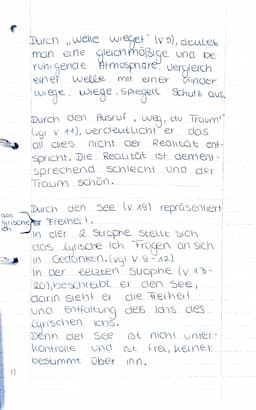 Durch "Welle wieget" (v 9), deutet
man eine gleichmäßige und be
ruhigende Atmosphäre. Vergleich
einer Welle mit einer Kinder
wiege. Wiege spiegelt Schutz aus.
Durch den Ausruf, "Weg, du Traum!"
(vgl v 11), verdeutlicht er das
all dies nicht der Realität ent-
spricht. Die Realität ist dement-
sprechend schlecht und der
Traum schön.
Durch den See (v 19) repräsentiert
das lyrische Ich
er Freiheit.
In der 2 Strophe stellt sich
das lyrische Ich Fragen an sich
in Gedanken. (vgl v. 9-12)
In der letzten Strophe (v 13-
20), beschreibt er den See,
darin sieht er die Freiheit
und Entfaltung des Ichs, des
lyrischen Ichs.
Denn der See ist nicht unter-
kontrolle und ist frei, keiner
bestimmt über ihn.